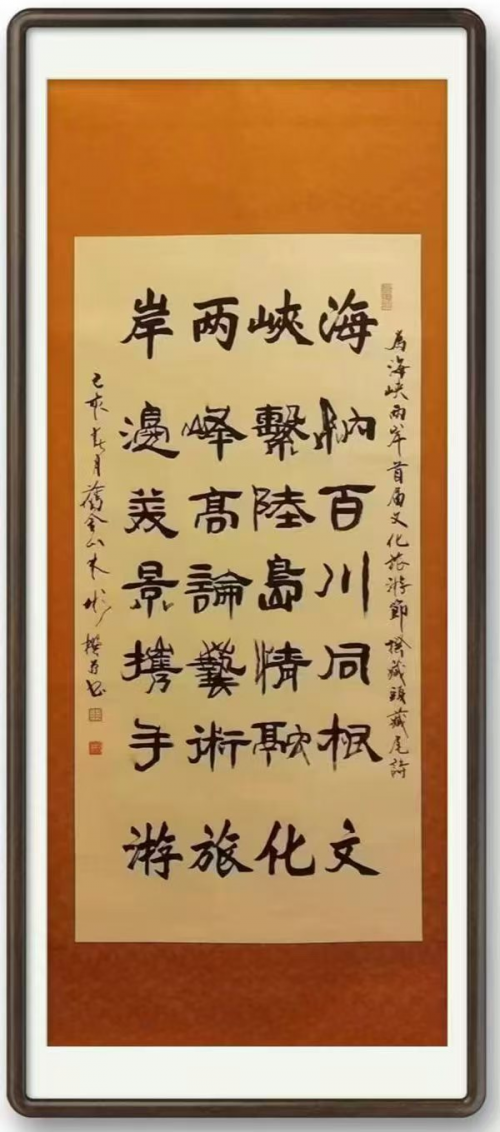 為海峽兩岸首届文化旅游節撰藏頭藏尾詩
海納百川同根文
峽繫陸島情融化
两峰高論藝術旅
岸邊美景攜手游
己亥春月舊金山木彬撰并书